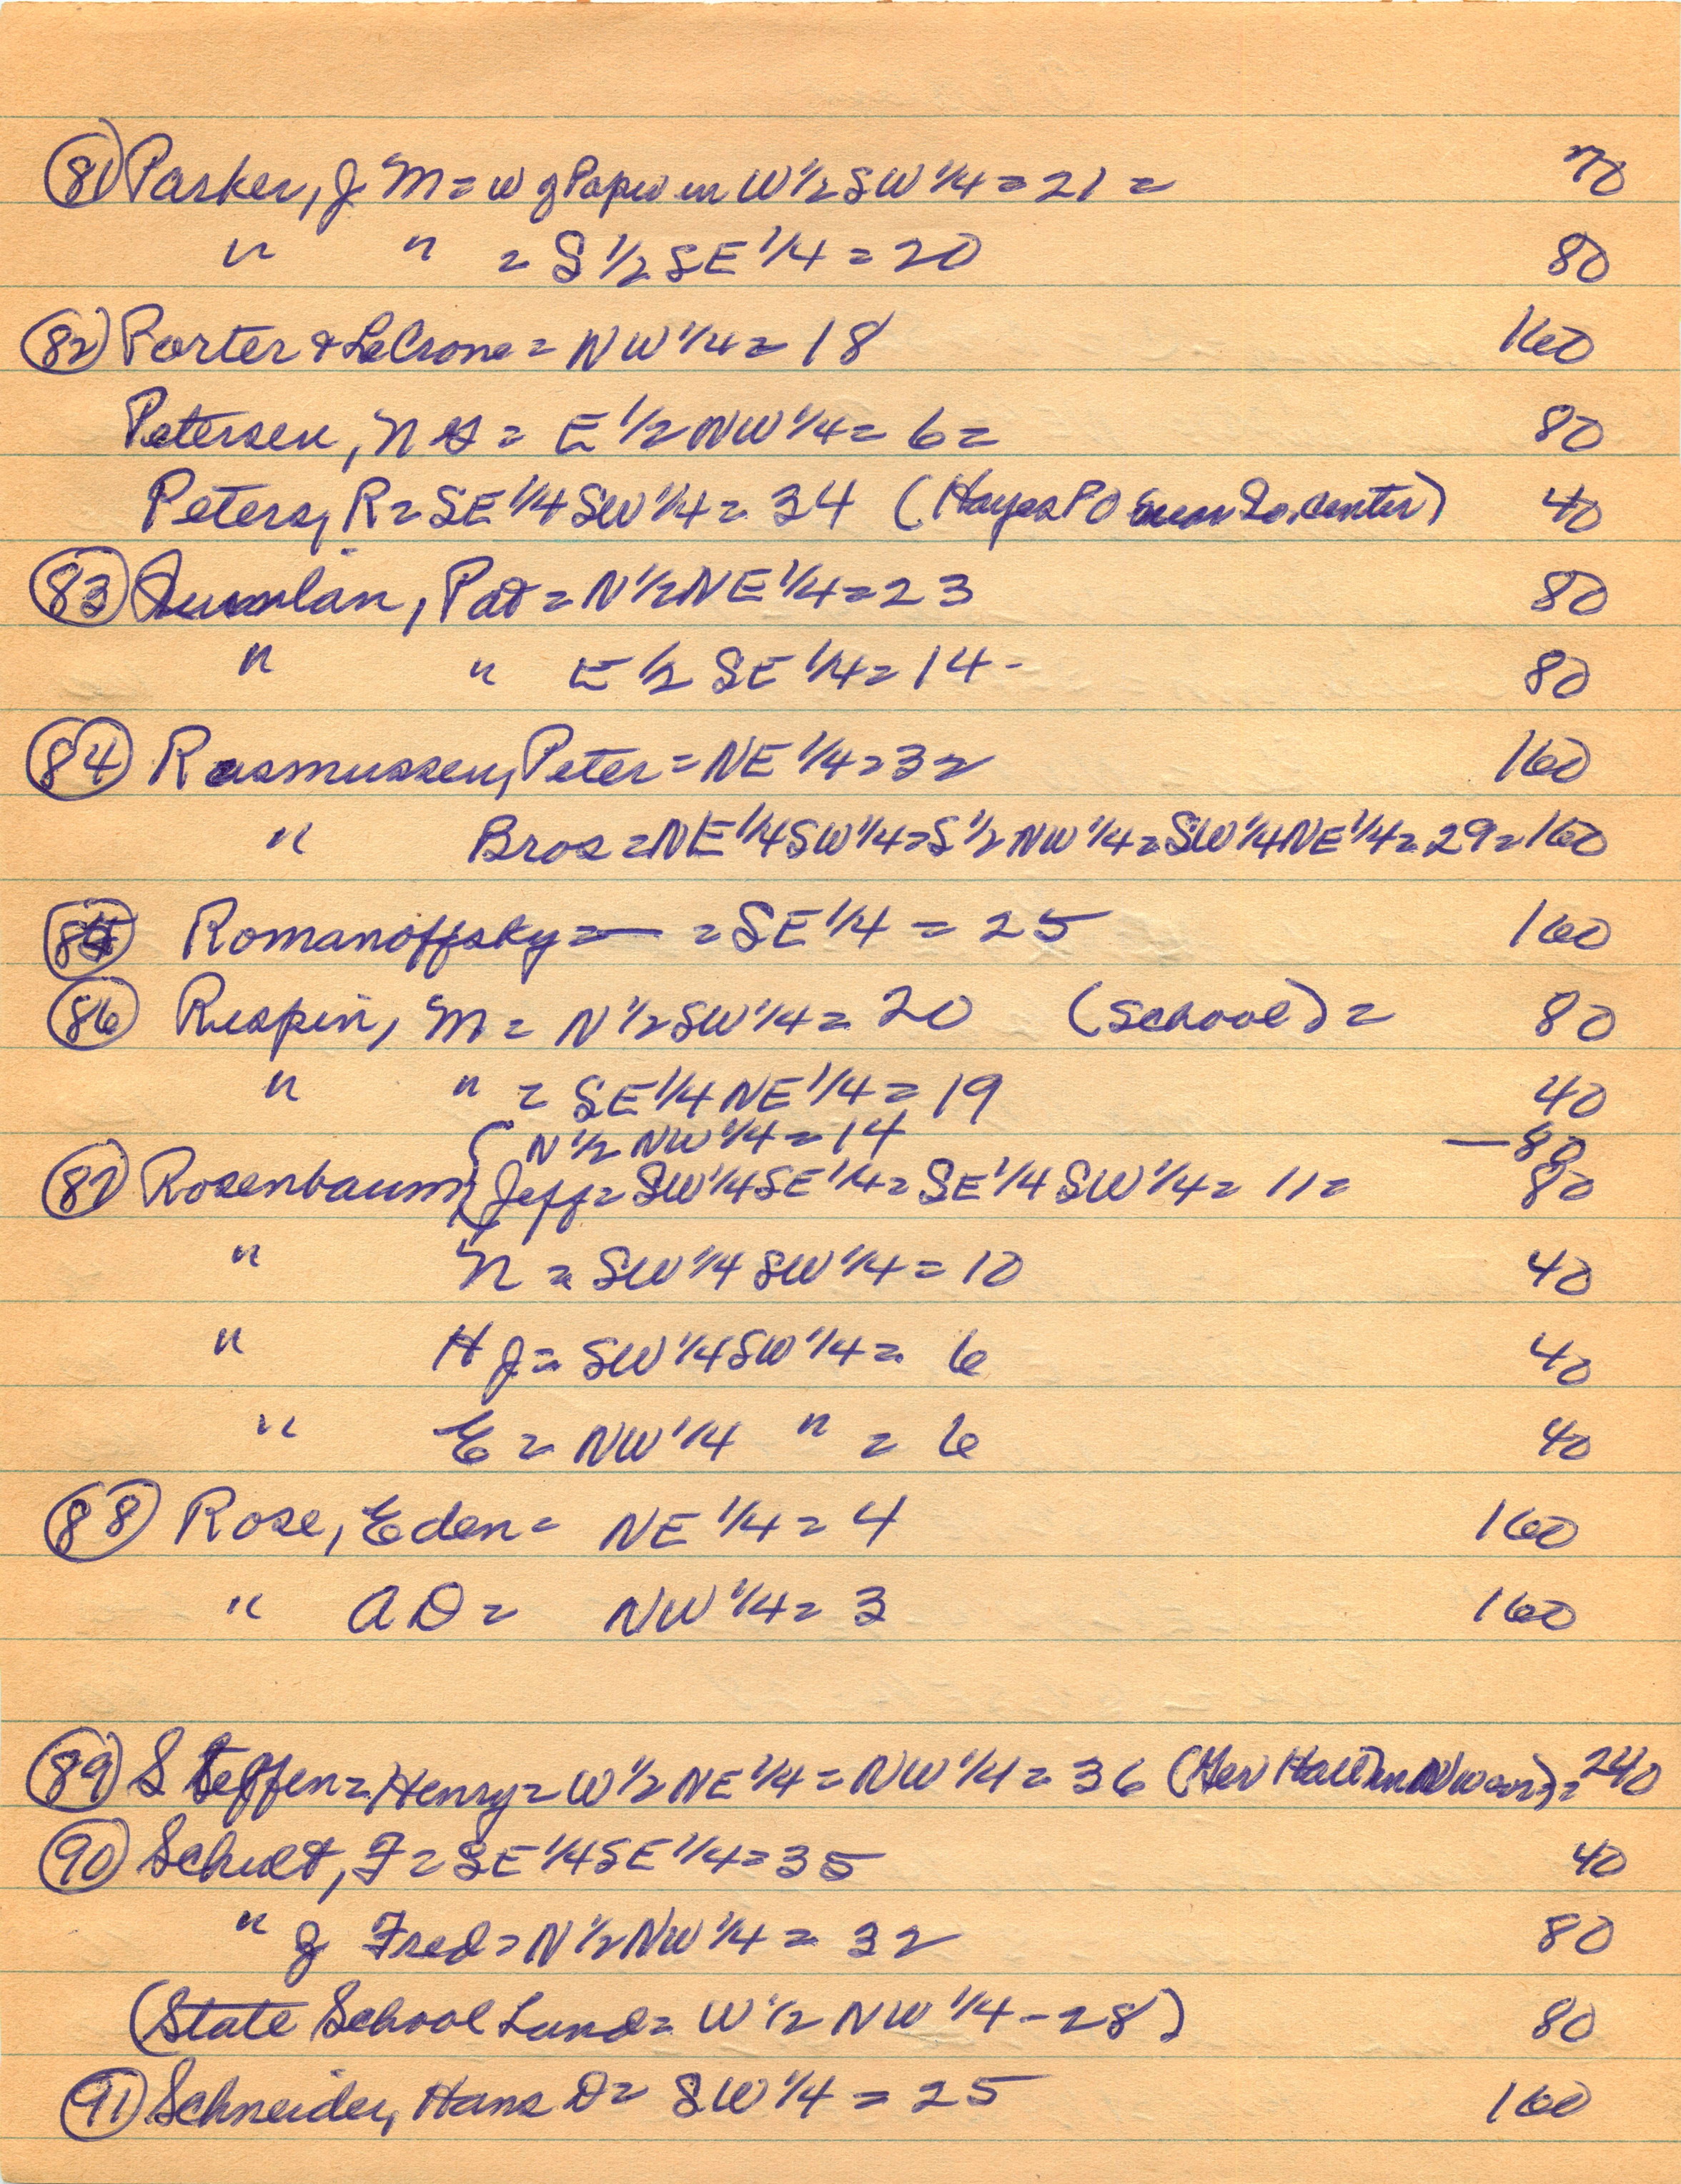 (81) Parker, J M = w of Papio in W 1/2 SW 1/4 = 21 = 70
" " = S 1/2 SE 1/4 = 20 80
(82) Porter & LeCrone = NW 1/4 = 18 160
Petersen, N = E 1/2 NW 1/4 = 6 = 80
Peters, R = SE 1/4 SW 1/4 = 34 (Hayes PO near So. center) 40
(83) Pat = N 1/2 NE 1/4 = 23 80
" " E 1/2 SE 1/4 = 14 - 80
(84) Rasmussen, Peter = NE 1/4 = 32 160
" Bros = NE 1/4 SW 1/4 = S 1/2 NW 1/4 = SW 1/4 NE 1/4 = 29 = 160
Romanoffsky = — = SE 1/4 = 25 160
(86) Rispin, M = N 1/2 SW 1/4 = 20 (School) = 80
" " = SE 1/4 NE 1/4 = 19 40
{ N 1/2 NW 1/4 = 14 — 80
(87) Rosenbaum { Jeff = SW 1/4 SE 1/4 = SE 1/4 SW 1/4 = 11 = 80
" N = SW 1/4 SW 1/4 = 10 40
" H J = SW 1/4 SW 1/4 = 6 40
" E = NW 1/4 " = 6 40
(88) Rose, Eden = NE 1/4 = 4 160
" A D = NW 1/4 = 3 160
(89) Steffen = Henry = W 1/2 NE 1/4 = NW 1/4 = 36 (Ger Hall in NW cor) = 240
(90) Schult, F = SE 1/4 SE 1/4 = 35 40
" J Fred = N 1/2 NW 1/4 = 32 80
(State School Land = W 1/2 NW 1/4 - 28) 80
(91) Schneider, Hans D = SW 1/4 = 25 160